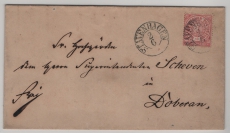 Sr. Hochwürden
dem Herrn Superintendenten Scheven
in
frei
Doberan.